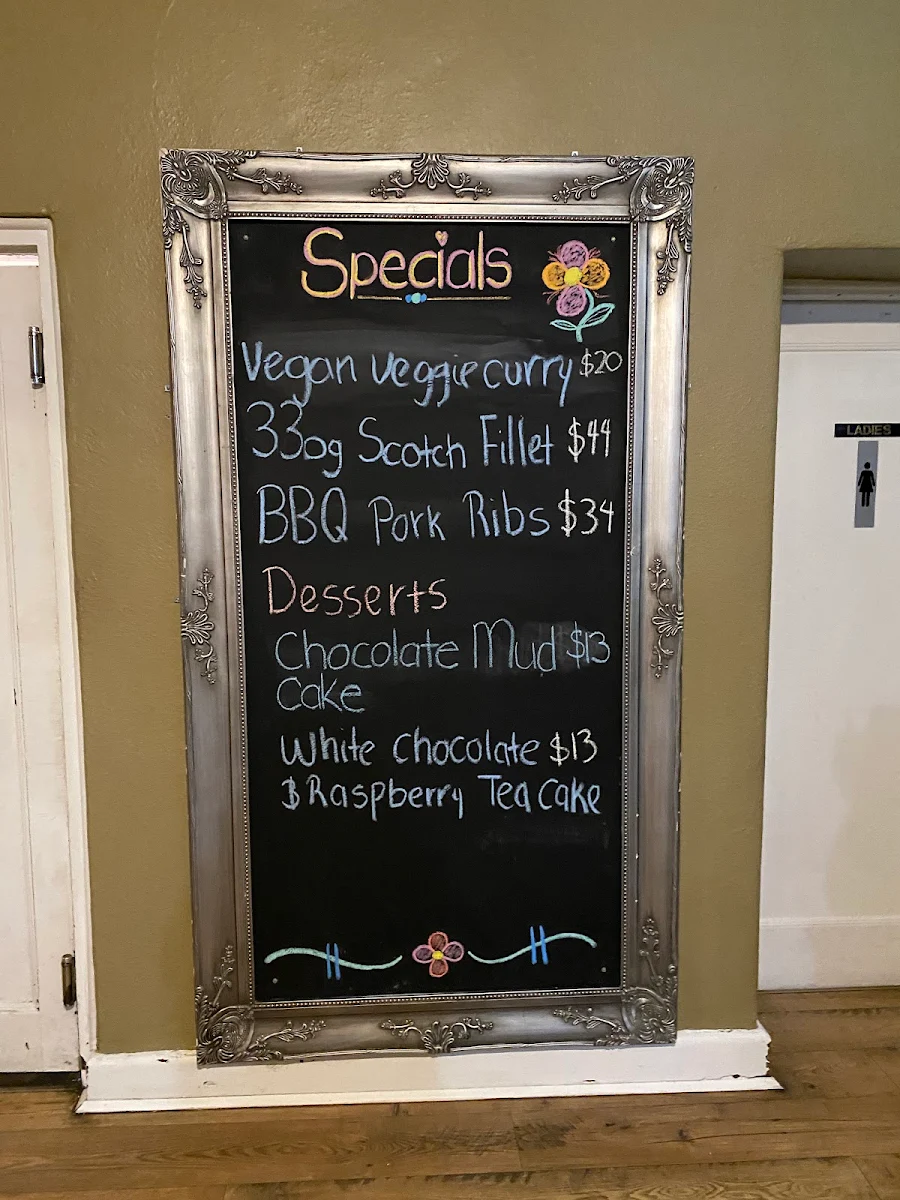 Specials
Vegan veggie curry $20
330g Scotch Fillet $44
BBQ Pork Ribs $34
Desserts
Chocolate Mud $13
Cake
White chocolate $13
& Raspberry Tea Cake
LADIES